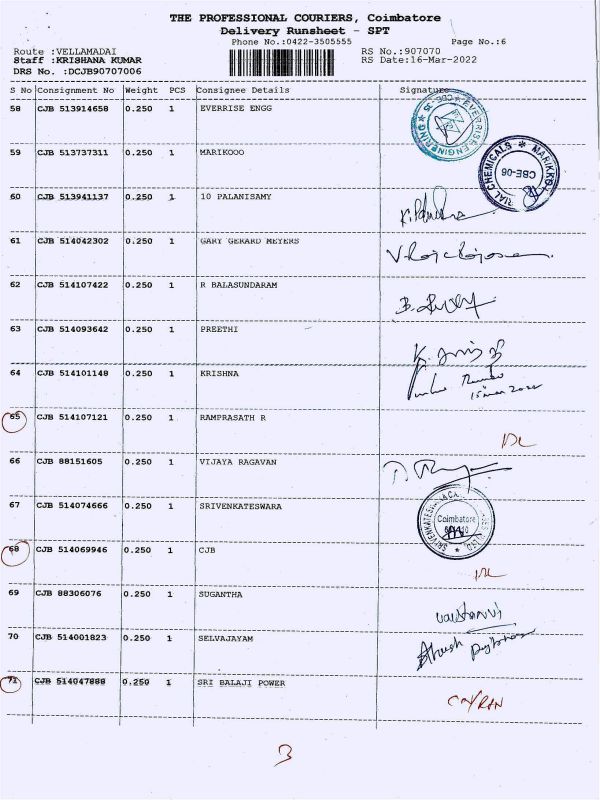 THE PROFESSIONAL COURIERS, Coimbatore
Delivery Runsheet - SPT
Phone No.:0422-3505555 Page No.:6
Route :VELLAMADAI RS No.:907070
Staff :KRISHANA KUMAR RS Date:16-Mar-2022
DRS No. :DCJB90707006
S No Consignment No Weight PCS Consignee Details Signature
58 CJB 513914658 0.250 1 EVERRISE ENGG
EVERRISE ENGINEERING * CBE-35 *
59 CJB 513737311 0.250 1 MARIKOOO
CHEMICALS * MARIKKO
CBE-06
60 CJB 513941137 0.250 1 10 PALANISAMY
61 CJB 514042302 0.250 1 GARY GERARD MEYERS
62 CJB 514107422 0.250 1 R BALASUNDARAM
63 CJB 514093642 0.250 1 PREETHI
64 CJB 514101148 0.250 1 KRISHNA
65 CJB 514107121 0.250 1 RAMPRASATH R
DL
66 CJB 88151605 0.250 1 VIJAYA RAGAVAN
67 CJB 514074666 0.250 1 SRIVENKATESWARA
Coimbatore
68 CJB 514069946 0.250 1 CJB
DL
69 CJB 88306076 0.250 1 SUGANTHA
70 CJB 514001823 0.250 1 SELVAJAYAM
71 CJB 514047888 0.250 1 SRI BALAJI POWER
3